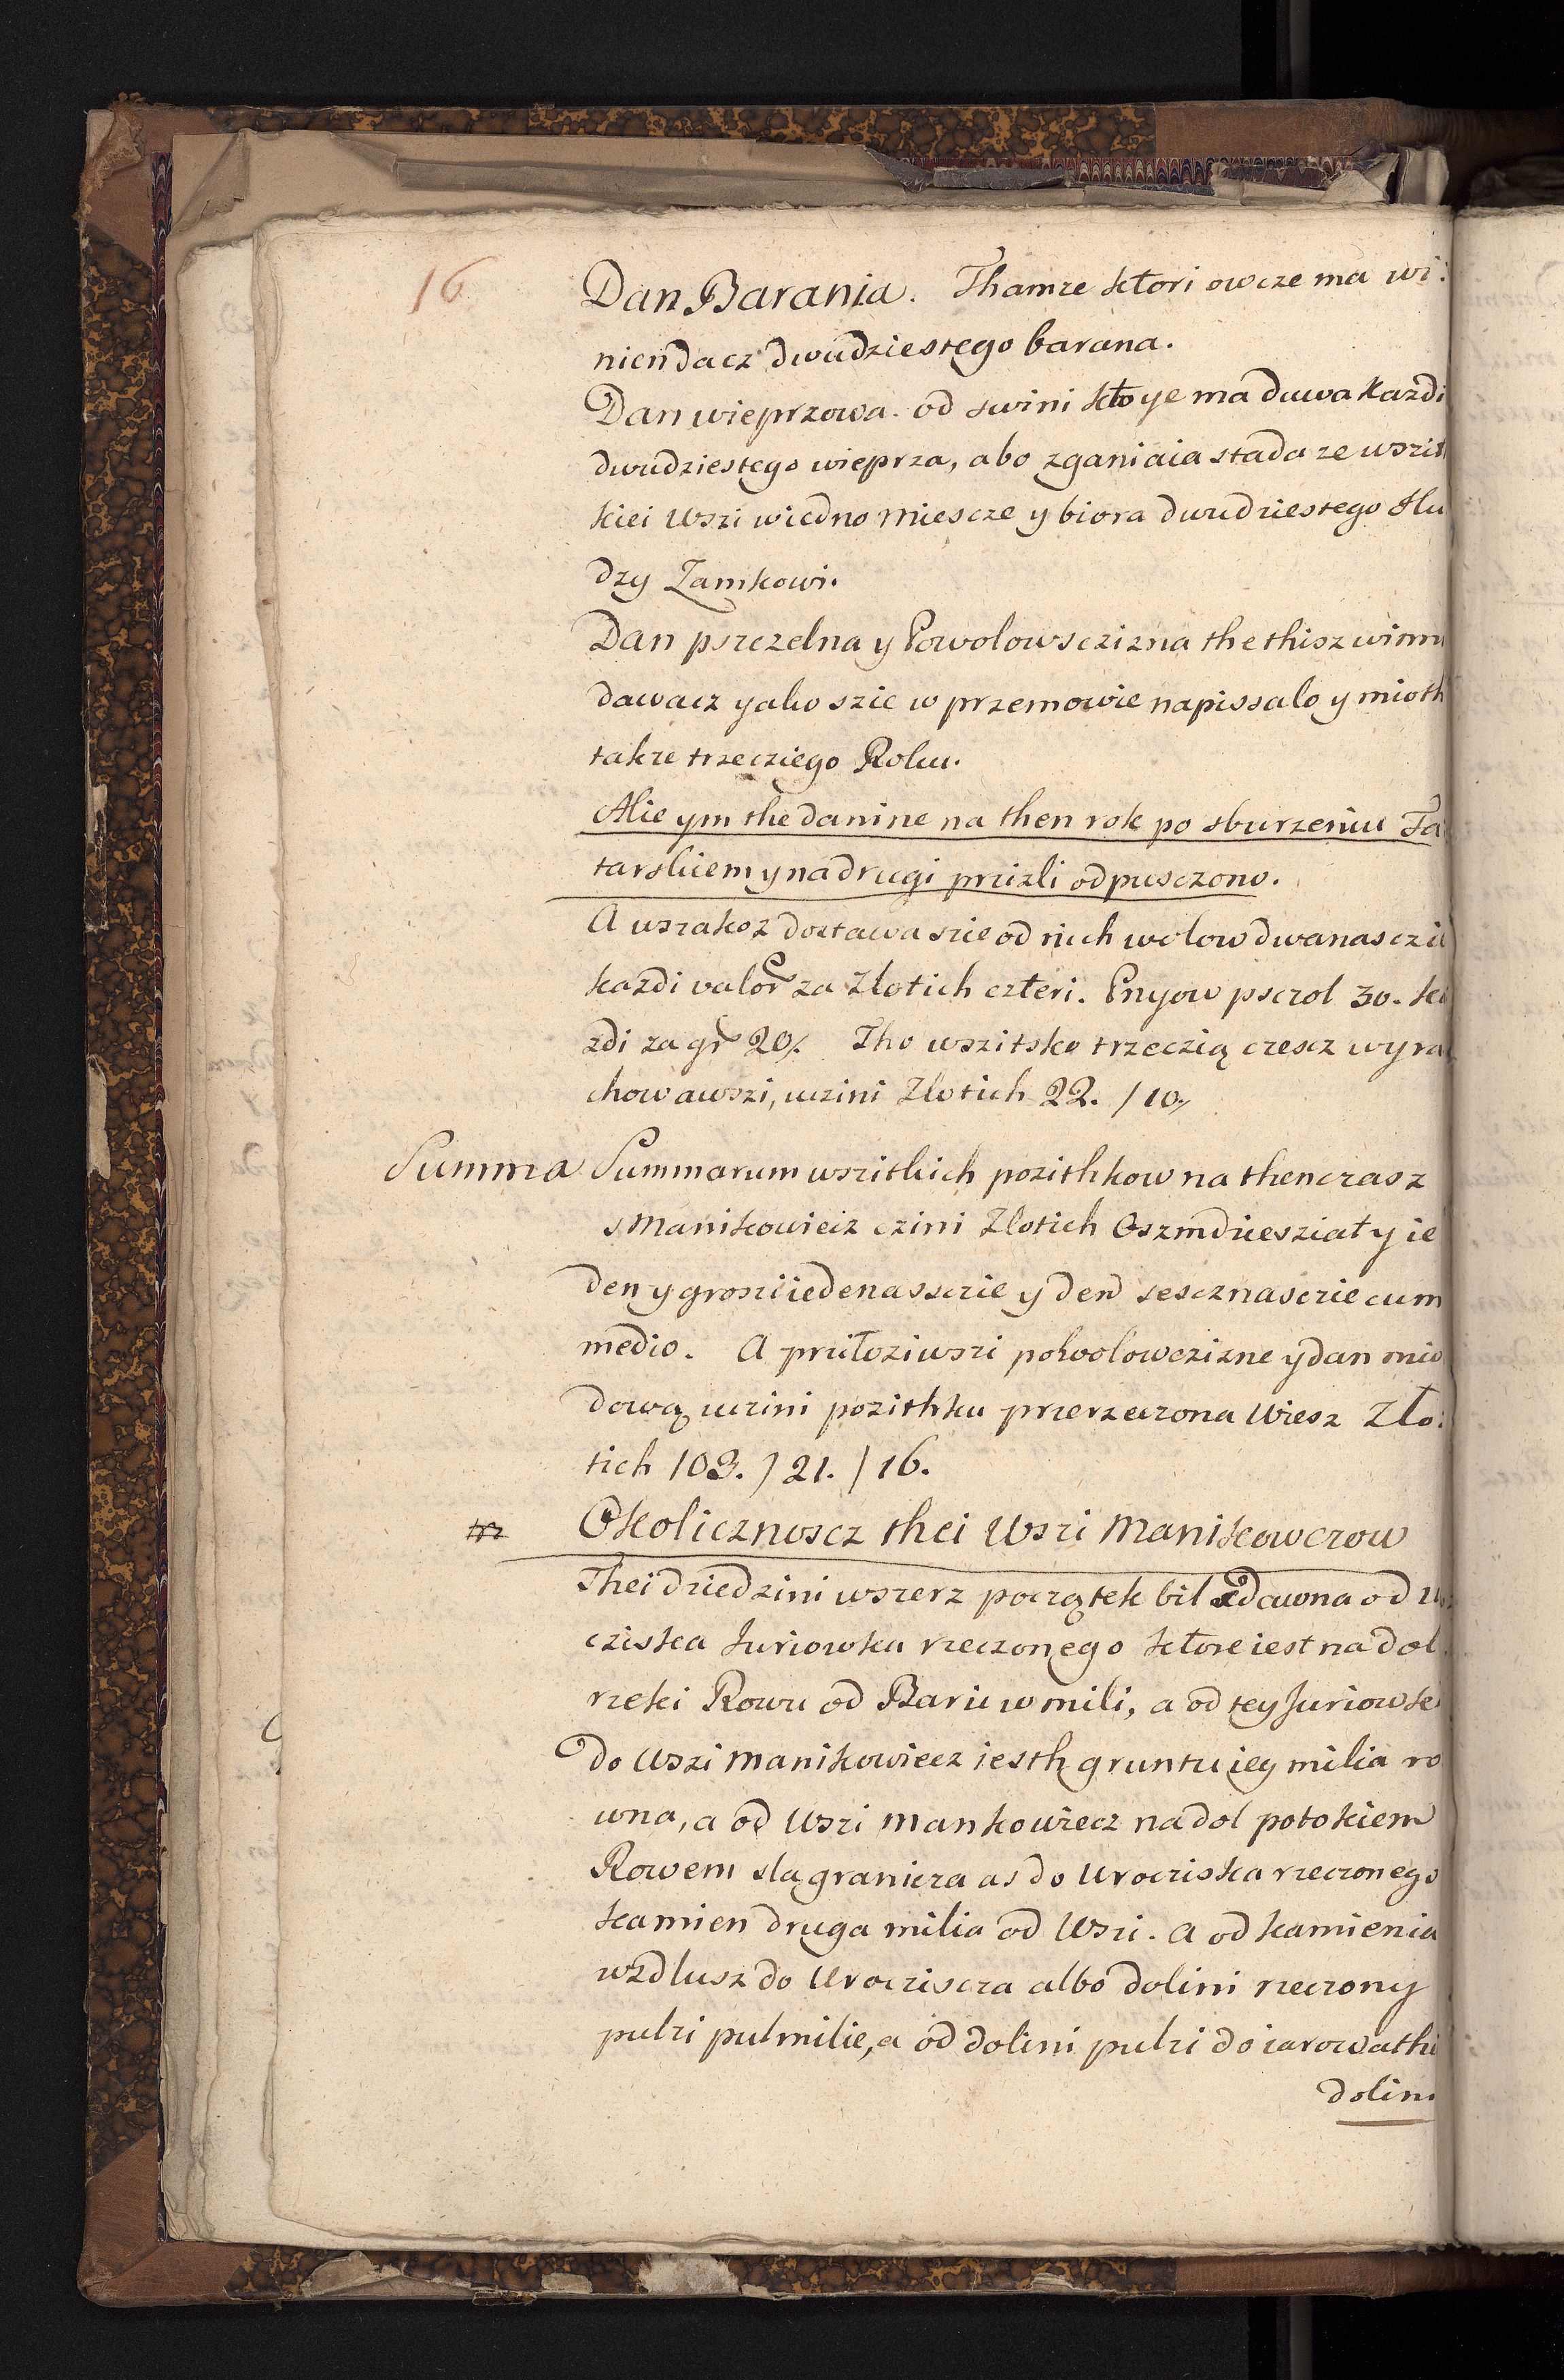 16
Dan Barania. Thamze ktori owcze ma wi:
nien dacz dwudziestego barana.
Dan wieprzowa. od swini kto ye ma duwa kazdi
dwudziestego wieprza, abo zganiaia stada ze wszit
kiei wszi wiedno miescze y biora dwudziestego slu
dzy Zamkowi.
Dan pszczelna y Powolowsczizna the thisz winni
dawacz yako szie w przemowie napissalo y mioth
takze trzecziego Roku.
Alie ym the danine na then rok po sburzeniu Ta
tarskiem y na drugi przizli odpusczono.
A wszakoz dostawa szie od nich wolow dwanasczie
kazdi valor za Zlotich czteri. Pnyow psczol 30. ka
zdi za gr 20/. Tho wszitsko trzeczią czescz wyra
chowawszi, uczini Zlotich 22. /10//
Summa Summarum wszitkich pozithkow na thenczas z
s Manikowiecz czini Zlotich Oszmdziesziat y ie
den y groszi iedenassczie y den sescznasczie cum
medio. A prziłoziwszi polwolowczizne y dan mio
dową uczini pozithku przerzeczona Wiesz Zło:
tich 103. / 21. / 16.
Okolicznoscz thei Wszi Manikowczow
Thei dziedzini wszerz początek bil zdawna od u
cziska Juriowka rzeczonego ktore iest na dol
rzeki Rowu od Baru w mili, a od tey Juriowk
do Wszi Manikowiecz iesth gruntu iey milia ro
wna, a od Wszi Mankowiecz na dol potokiem
Rowem sla granicza as do Urocziska rzeczonego
kamien druga milia od Wszi. A od kamienia
wzdlusz do Urocziscza albo dolini rzeczony
pulzi pulmilie, a od dolini pulzi do iarowathi
dolini